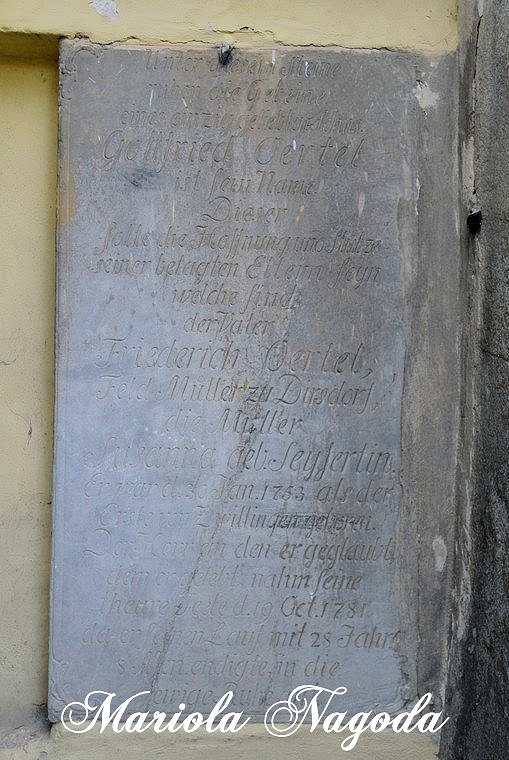 Unter diesem Steine
ruhen die Gebeine
eines einzig geliebten
Gottfried Oertel
ist sein Name
Dieser
solte die Hoffnung und Stütze
seiner betagten Eltern seyn
welche sind
der Vater
Friederich Oertel,
Feld Müller zu Dirsdorf,
die Mutter
Susanna geb. Seyfertin.
Er war d. Jan. 1753 als der
Erste von Zwillingen geboren.
Der Herr an den er geglaubt,
dem er gelebt, nahm seine
theure Seele d. 19 Oct. 1781
da er seinen Lauf mit 28 Jahr
8 Mon. endigte in die
ewige Ruhe
Mariola Nagoda